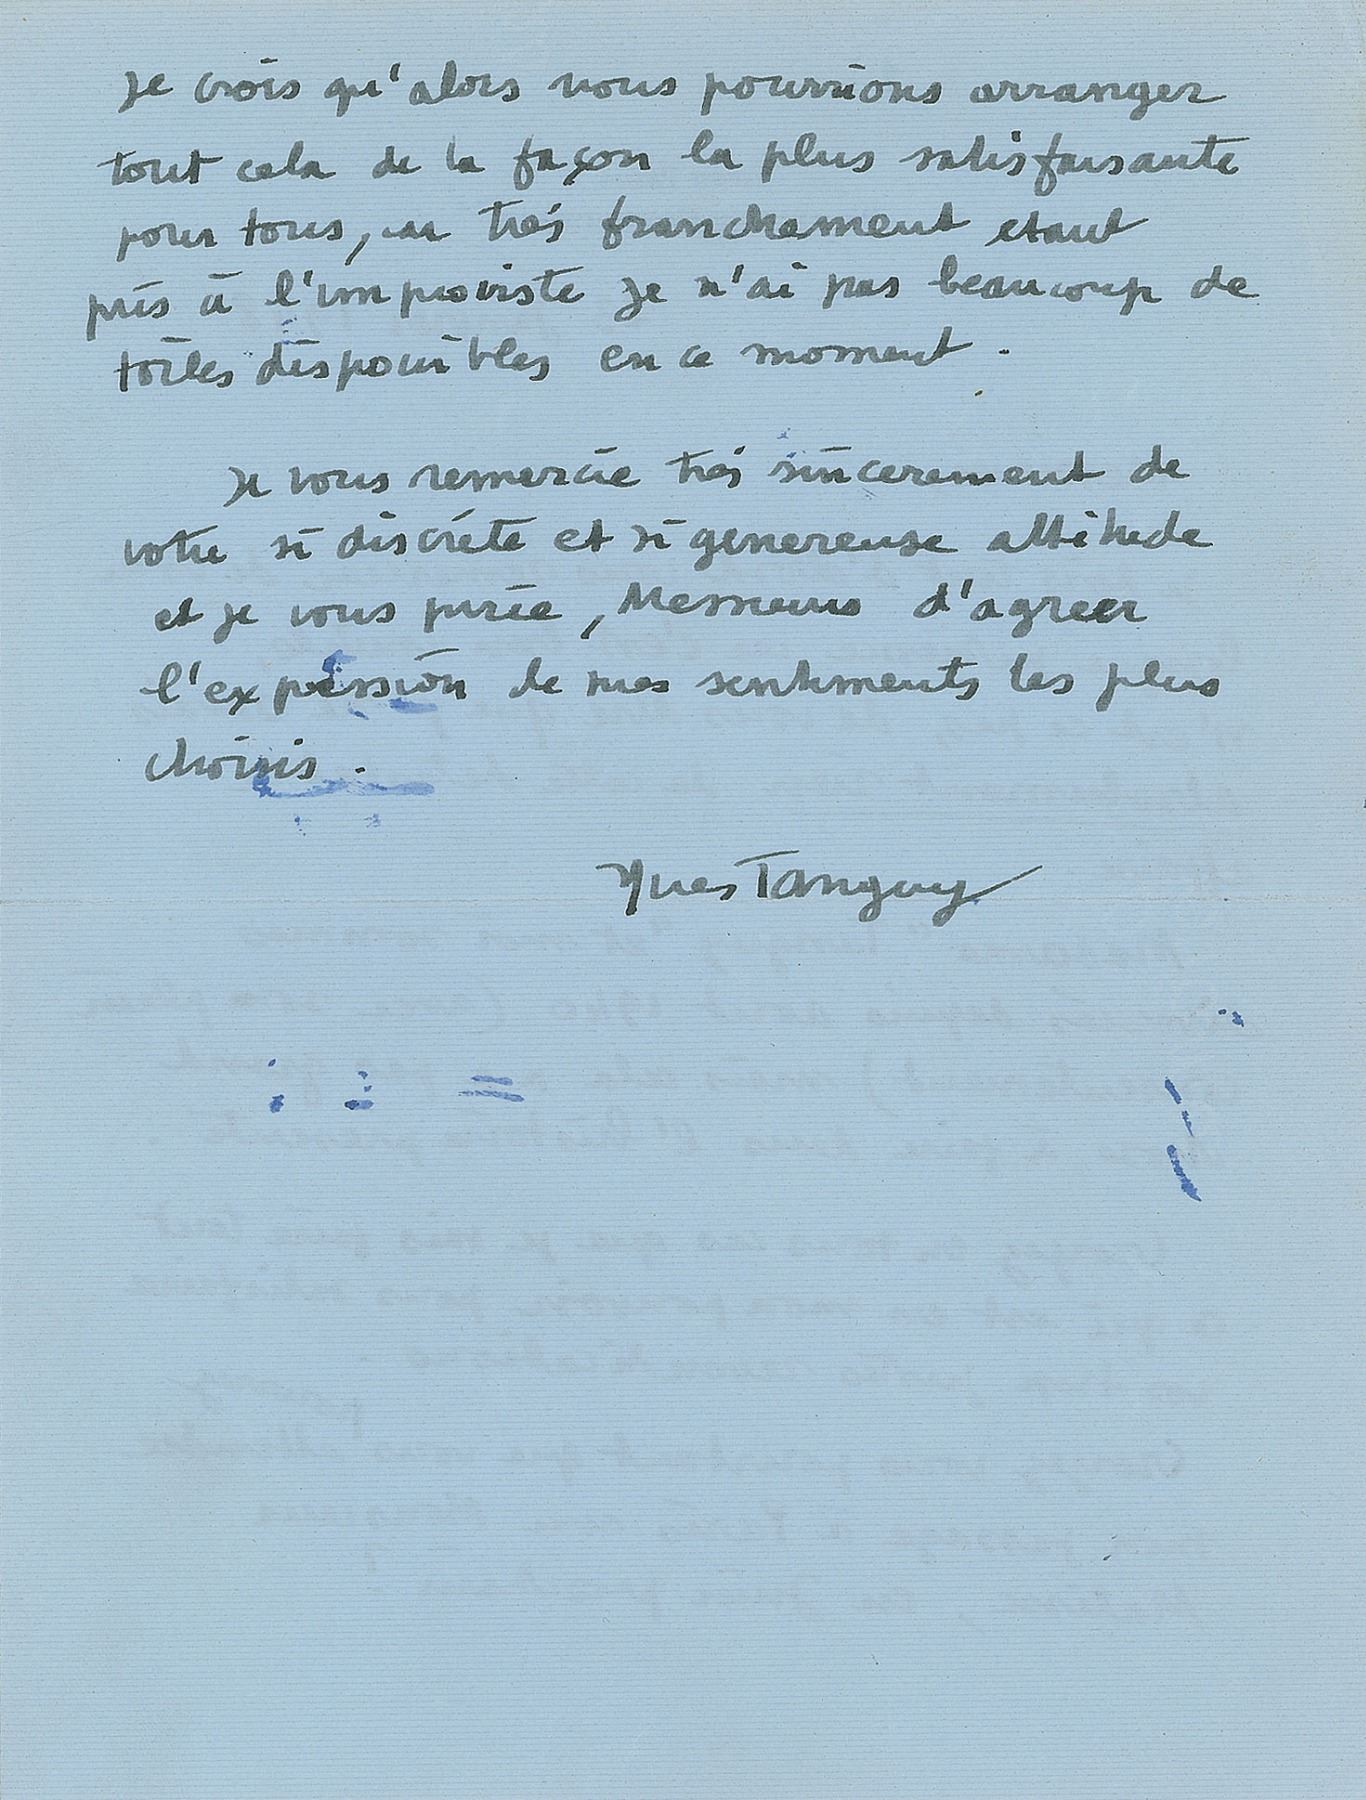 Je crois qu'alors nous pourrions arranger
tout cela de la façon la plus satisfaisante
pour tous, car très franchement etant
pris à l'improviste je n'ai pas beaucoup de
toiles disponibles en ce moment.
Je vous remercie très sincerement de
votre si discrète et si genereuse attitude
et je vous prie, Messieurs d'agreer
l'expression de mes sentiments les plus
choisis.
Yves Tanguy